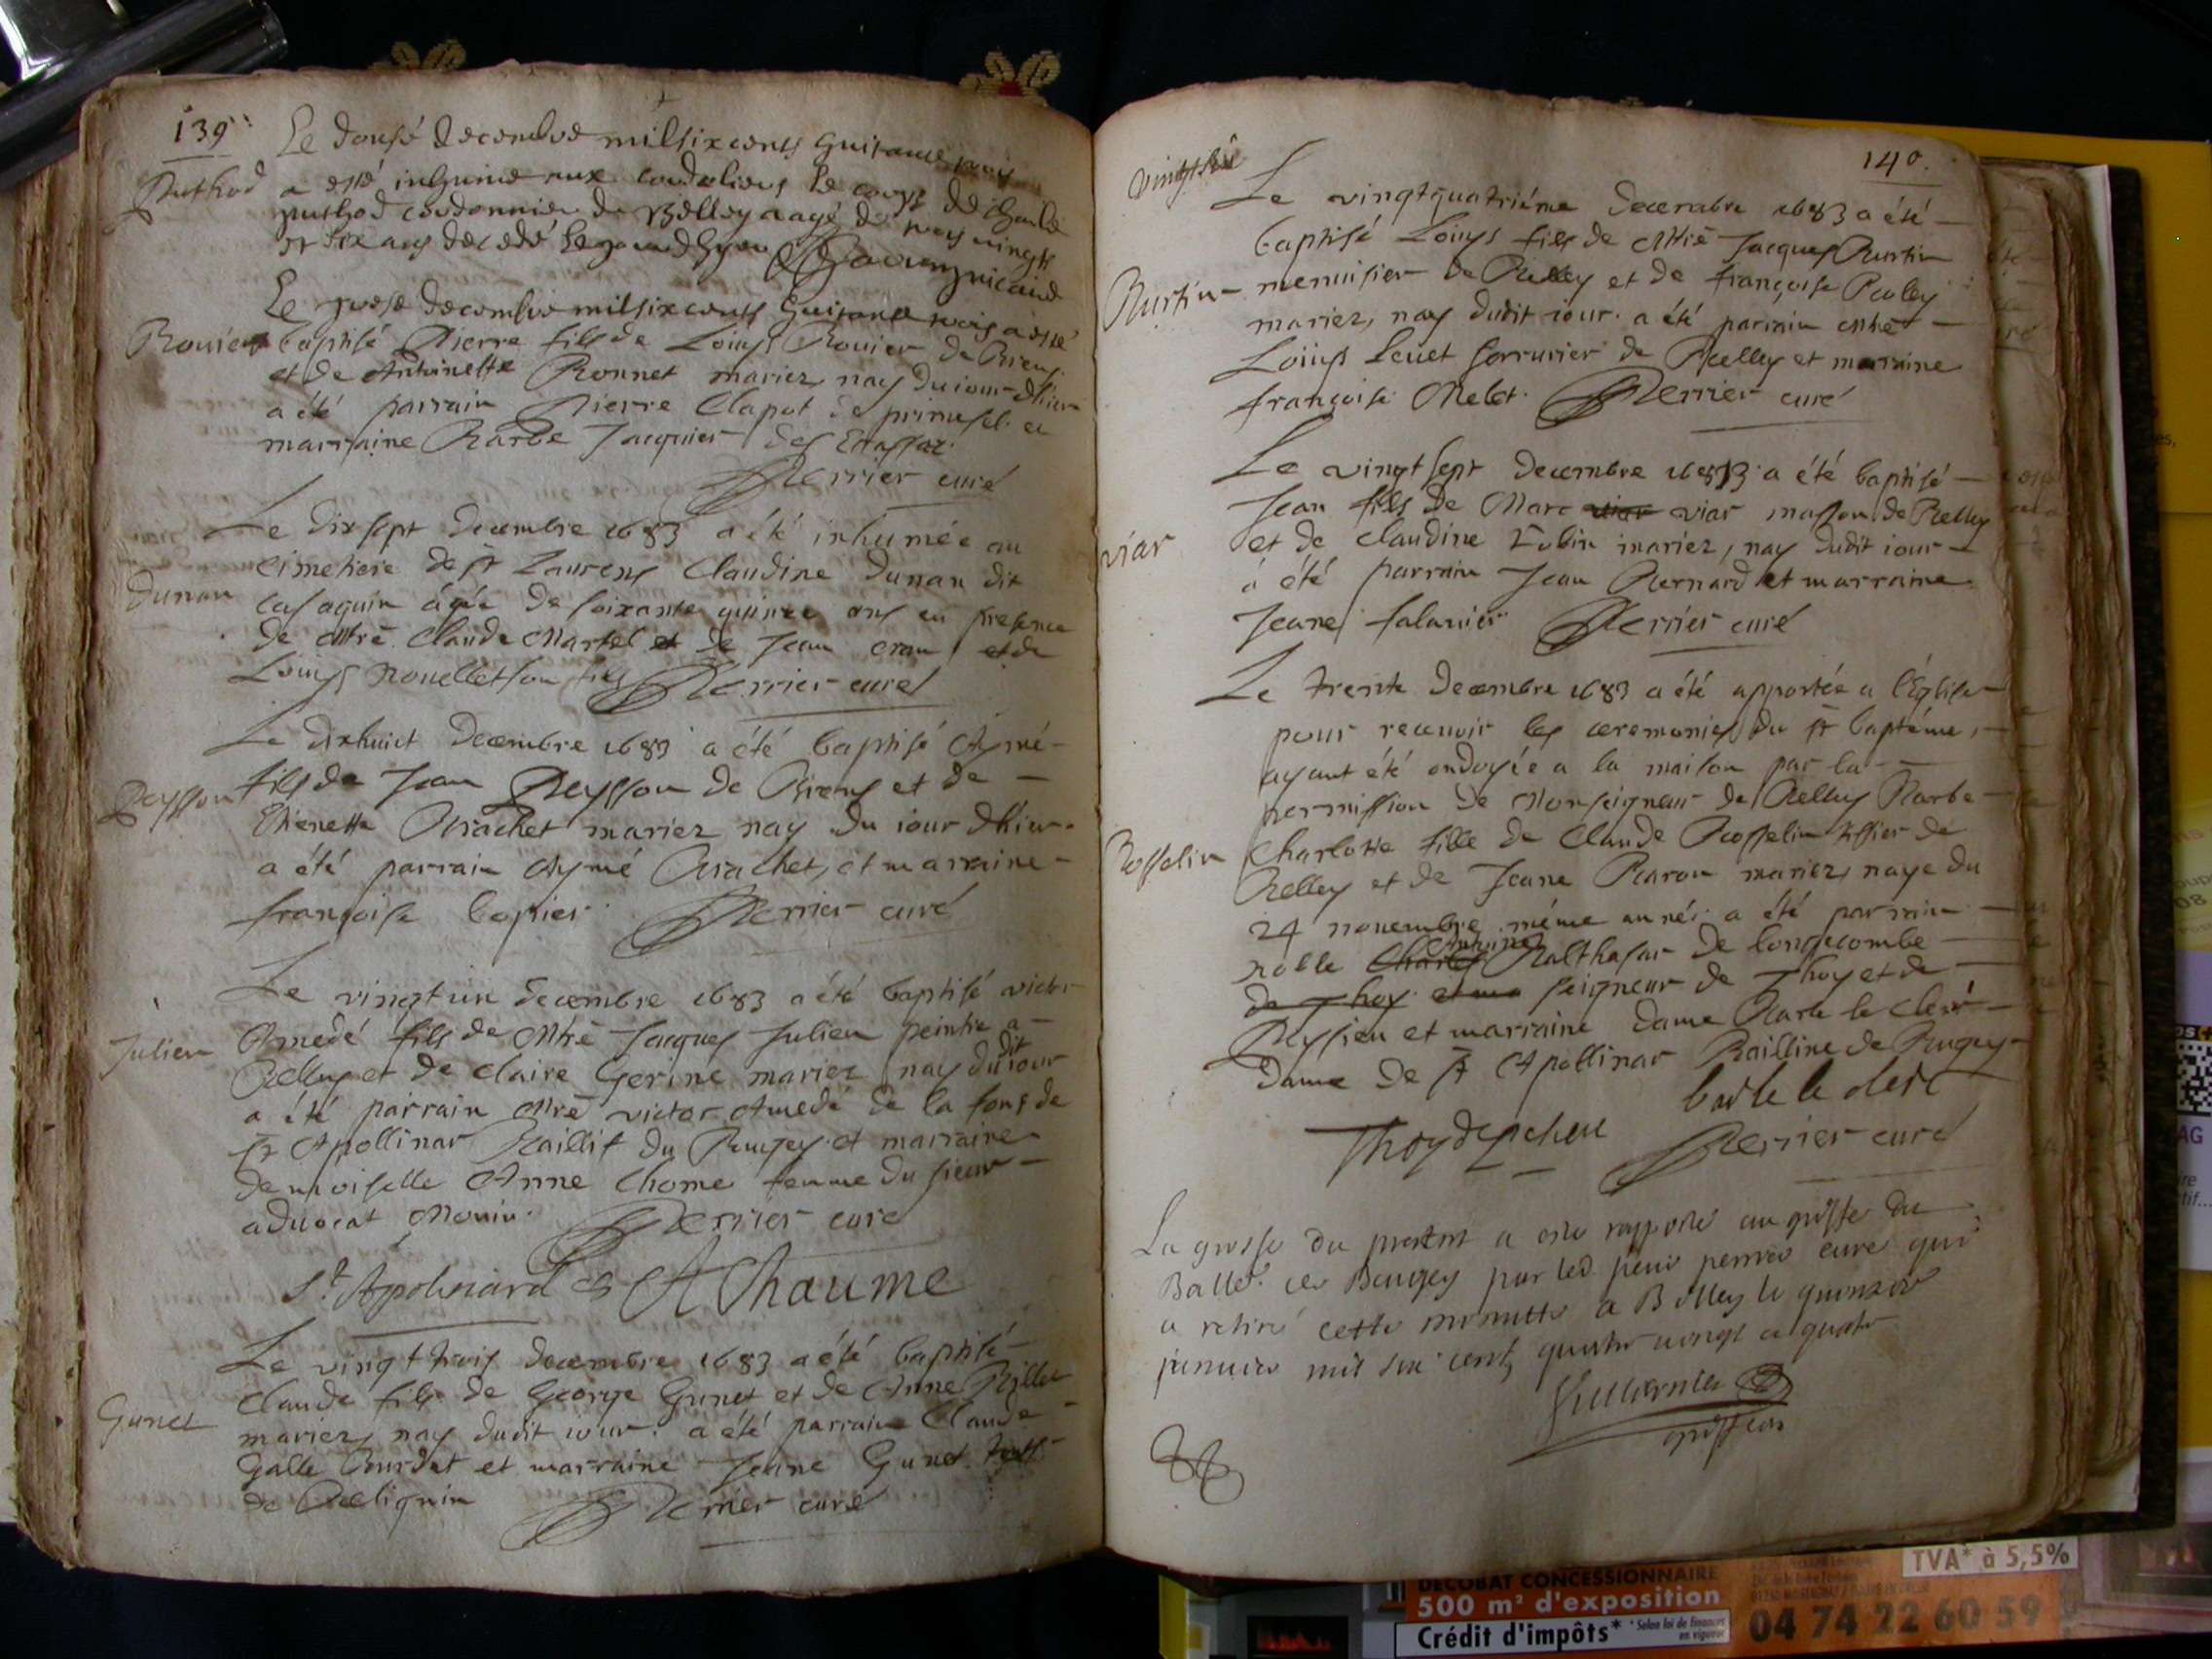 139
Le douse decembre mil six cents huitante trois
Puthod
a esté inhumé aux cordeliers le corps de Charle
puthod cordonnier de Belley aagé de trois vingts
et six ans decedé le jour d'hyer
Le treise decembre mil six cents huitante trois a esté
Rouier
baptisé Pierre fils de Louys Rouier de Brens
et de Anthinette Bonnet mariez, nay du iour d'hier
a été parrain Pierre Clapot de primesel et
marraine Barbe Jacquier des Ecassaz.
Perrier curé
Le dix sept decembre 1683 a été inhumée au
Dunan
cimetiere de st Laurens Claudine Dunan dit
casaquin ágée de soixante quinze ans en presence
de Mtre Claude Martel et de Jean cran et de
Louys Nouellet son fils Perrier curé
Le dixhuict decembre 1683 a été baptisé Aymé
Peysson
fils de Jean Peysson de Brens et de
Etienette Brachet mariez nay du iour d'hier.
a été parrain Aymé Brachet, et marraine
françoise Copier. Perrier curé
Le vingt un decembre 1683 a été baptisé victor
Julien
Amedé fils de Mtre Jacques Julien peintre a
Belley et de Claire Gerine mariez nay du dit iour
a été parrain Mre victor Amedé de la fons de
st Apollinar Baillif du Bugey et marraine
demoiselle Anne Chome femme du sieur
aduocat Monin. Perrier curé
St. Apolinard A Chaume
Le vingt trois decembre 1683 a été baptisé
Gunet
Claude fils de George Gunet et de Anne Billet
mariez, nay dudit iour. a été parrain Claude
Galle Bourdat et marraine Jeane Gunet
de Peolignin
Perrier curé
140.
Le vingtquatriéme decembre 1683 a été
baptisé Louys fils de Mtre Jacques Burtin
Burtin
menuisier de Belley et de françoise Poley
mariez, nay dudit iour. a été parrain Mtre
Louys Leuet serrurier de Belley et marraine
françoise Melet. Perrier curé
Le vingt sept decembre 1683 a été baptisé
Jean fils de Marc viar viar masson de Belley
viar
et de Claudine Tubin mariez, nay dudit iour
a été parrain Jean Bernard et marraine
Jeane falauier Perrier curé
Le trente decembre 1683 a été apportée a l'Eglise
pour receuoir les ceremonies du st baptéme,
ayant été ondoyée a la maison par la
permission de Monseigneur de Belley Barbe
Rosselin
Charlotte fille de Claude Rosselin tissier de
Belley et de Jeane Baron mariez, naye du
24 nouembre méme année. a été parrain
noble Charles Antoine Balthasar de longecombe
de Thoy et ma seigneur de Thoy et de
Peysieu et marraine dame Barbe le Clerc
dame de st Apollinar Baillive de Bugey
barbe le clerc
Thoy de peisieu
Perrier curé
La grosse du present a esté rapporté au greffe du
Balle. de Beugey par led sieur perrier curé qui
a retiré cette minutte a Belley le quinzie
januier mil six cent quatre vingt et quatre
greffier
DECOBAT CONCESSIONNAIRE
500 m² d'exposition
Crédit d'impôts* *Selon loi de finances en vigueur
TVA* à 5,5%
04 74 22 60 59